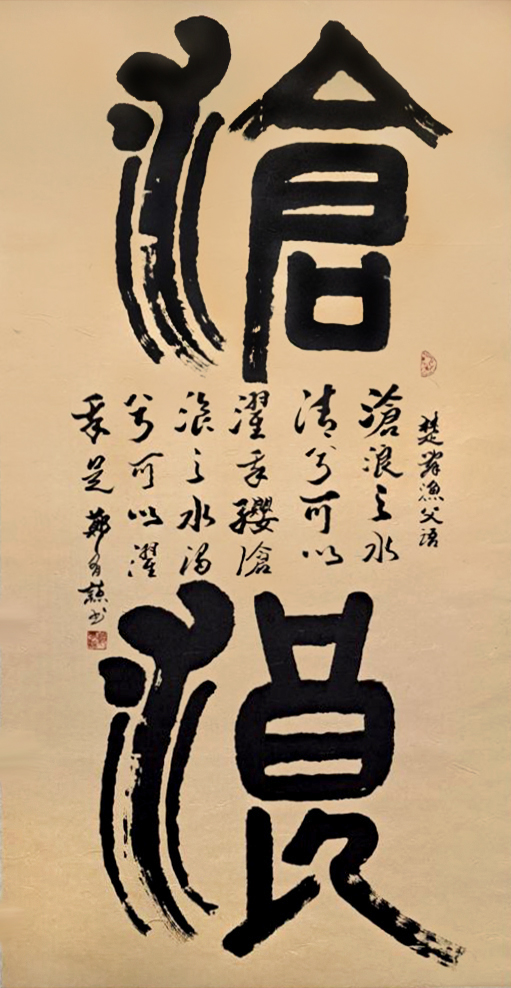 滄
浪
楚辭漁父語
滄浪之水
清兮可以
濯吾纓滄
浪之水濁
兮可以濯
吾足 鄭書